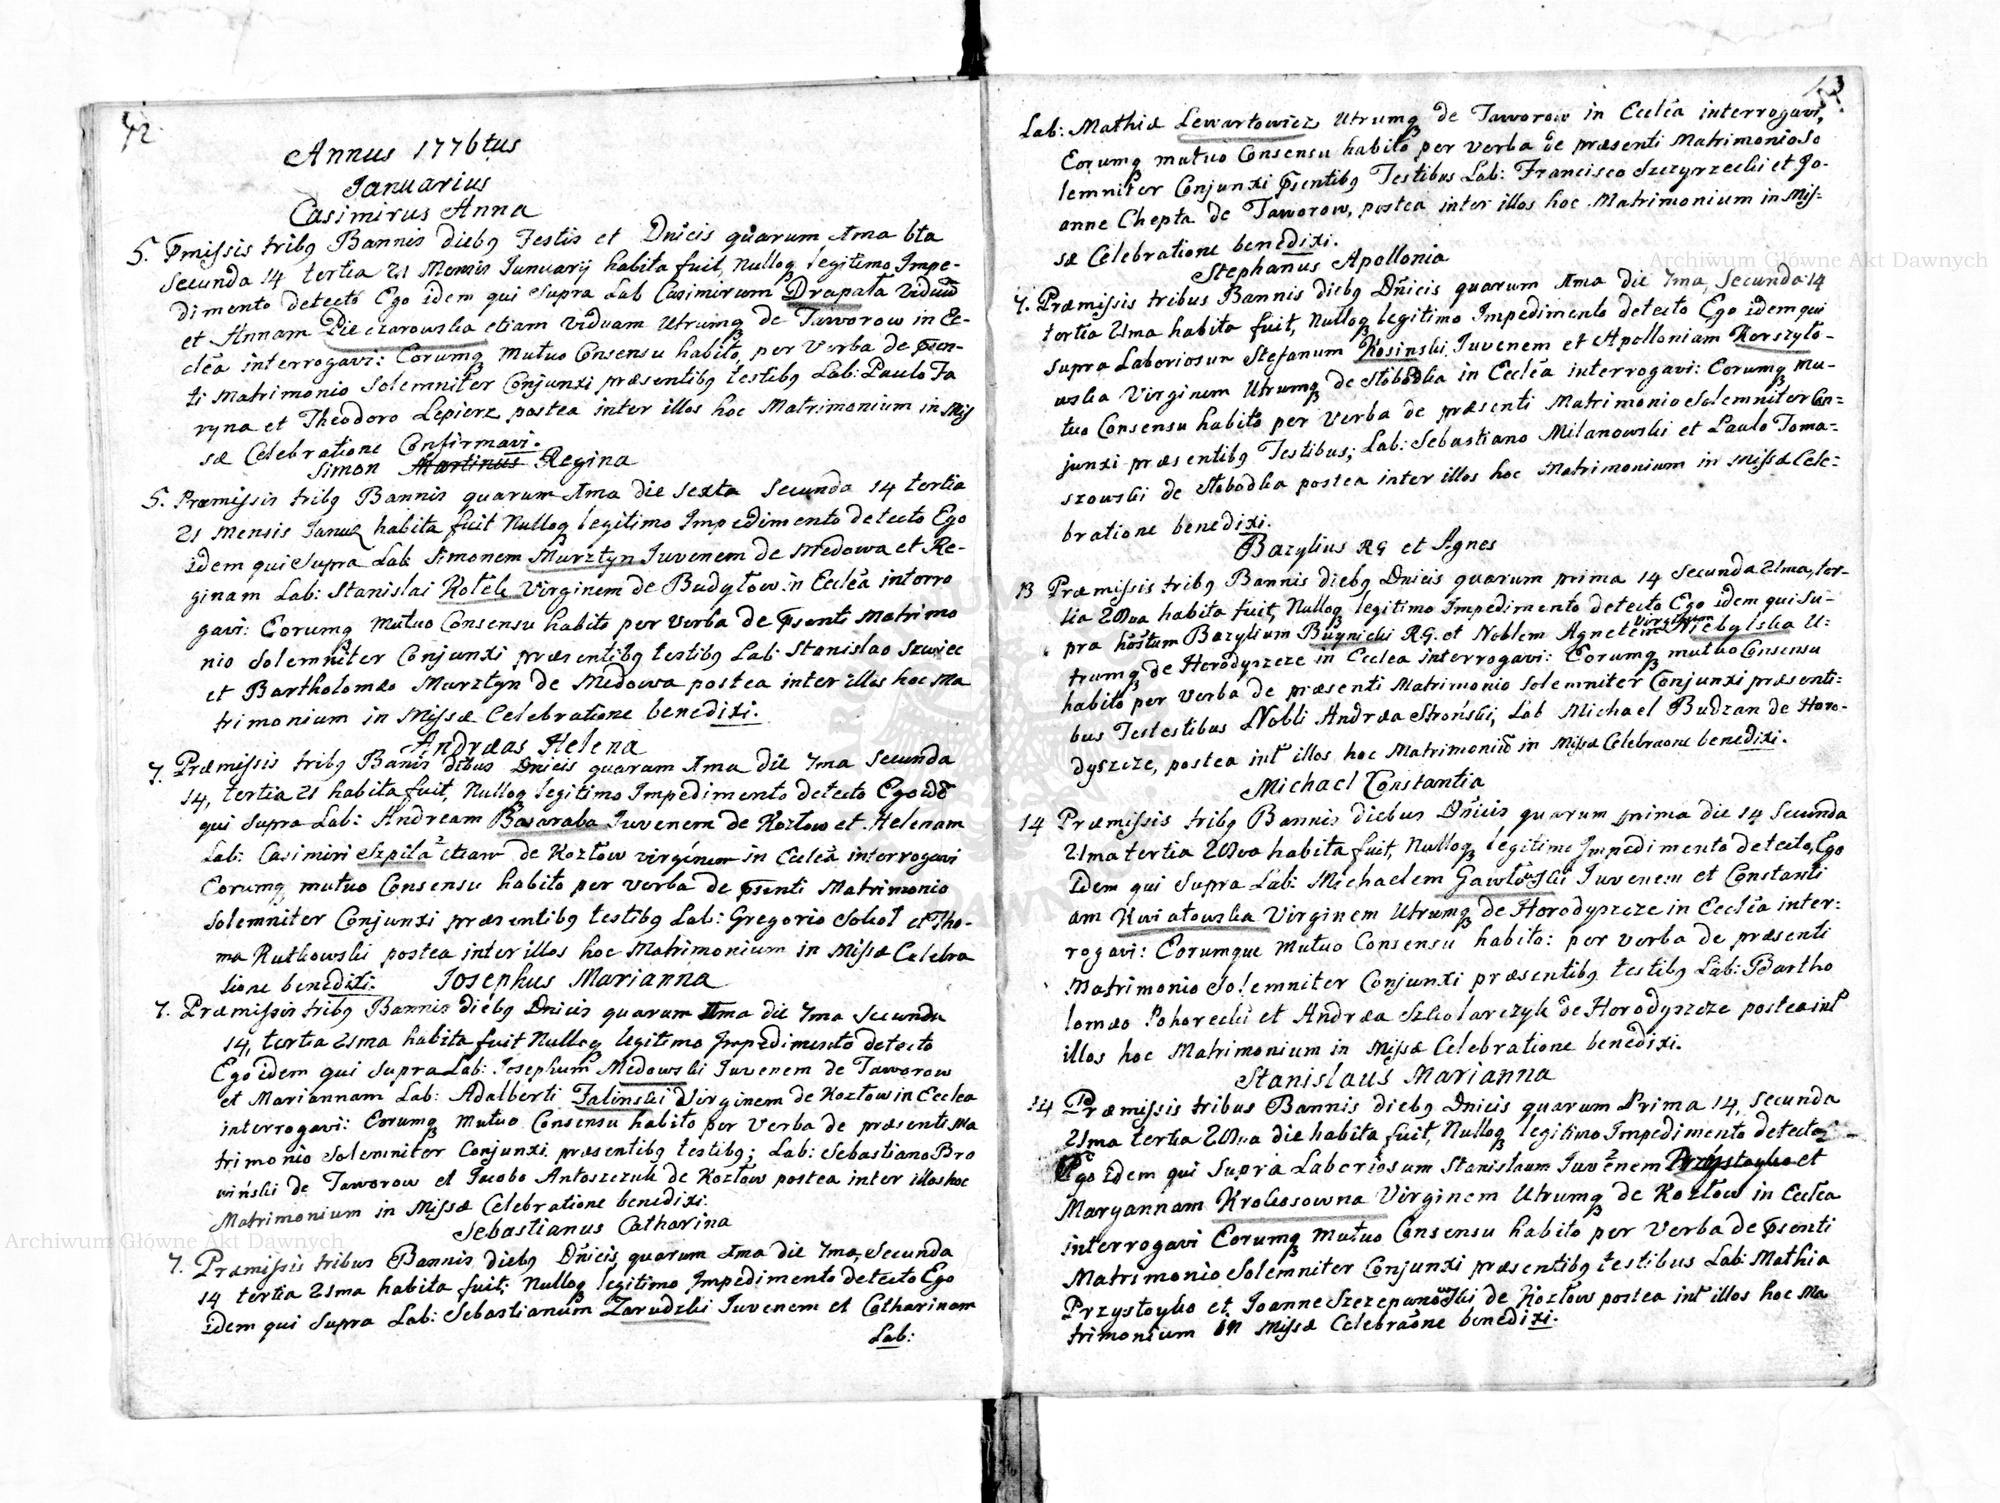 12.
Annus 1776tus
Januarius
Casimirus Anna
5. Pmissis tribq Bannis diebq Festis et Dnicis quarum Ima 6ta
Secunda 14 tertia 21 Mensis Januarij habita fuit, Nulloq legitimo Impe-
dimento detecto Ego idem qui Supra Lab Casimirum Drapała Viduũ
et Annam Pieczarowska etiam Viduam Utrumq de Jaworow in Ec-
clẽa interrogavi: Eorumq Mutuo Consensu habito, per Verba de psen-
ti Matrimonio Solemniter Conjunxi præsentibq testibq Lab: Paulo Ja
ryna et Theodoro Lepierz postea inter illos hoc Matrimonium in Mis
sæ Celebratione Confirmavi.
Simon Martinus Regina
5. Præmissis tribq Bannis quarum Ima die sexta Secunda 14 tertia
21 Mensis Janu habita fuit Nulloq legitimo Impedimento detecto Ego
idem qui Supra Lab Simonem Murztyn Juvenem de Medowa et Re-
ginam Lab: Stanislai Kotek Virginem de Budyłow in Ecclẽa interro
gavi: Eorumq Mutuo Consensu habito per Verba de psenti Matrimo
nio Solemniter Conjunxi præsentibq testibq Lab Stanislao Szwiec
et Bartholomæo Murztyn de Medowa postea inter illos hoc Ma
trimonium in Missæ Celebratione benedixi.
Andræas Helena
7. Præmissis tribq Banis dibus Dnicis quarum Ima die 7ma Secunda
14, tertia 21 habita fuit, Nulloq legitimo Impedimento detecto Ego idẽ
qui Supra Lab: Andream Basaraba Juvenem de Kozłow et Helenam
Lab: Casimiri Szpila etiam de Kozłow virginem in Ecclẽa interrogavi
Eorumq mutuo Consensu habito per verba de psenti Matrimonio
Solemniter Conjunxi præsentibq testibq Lab: Gregorio Sokoł et Tho-
ma Rutkowski postea inter illos hoc Matrimonium in Missæ Celebra
tione benedixi. Josephus Marianna
7. Præmissis tribq Bannis diebq Dnicis quarum Ima die 7ma Secunda
14, tertia 21ma habita fuit Nulloq legitimo Impedimento detecto
Ego idem qui Supra Lab: Josephum Medowski Juvenem de Jaworow
et Mariannam Lab: Adalberti Falinski Virginem de Kozłow in Ecclea
interrogavi: Eorumq Mutuo Consensu habito per Verba de præsenti Ma
trimonio Solemniter Conjunxi præsentibq testibq; Lab: Sebastiano Bro
wiński de Jaworow et Jacobo Antoszczuk de Kozłow postea inter illos hoc
Matrimonium in Missæ Celebratione benedixi.
Sebastianus Catharina
7. Præmissis tribus Bannis diebq Dnicis quarum Ima die 7ma, Secunda
14 tertia 21ma habita fuit; Nulloq legitimo Impedimento detecto Ego
idem qui Supra Lab: Sebastianum Zarudzki Juvenem et Catharinam
Lab:
13
Lab: Mathiæ Lewartowicz Utrumq de Jaworow in Ecclẽa interrogavi,
Eorumq mutuo Consensu habito per verba de præsenti Matrimonio So
lemniter Conjunxi psentibq Testibus Lab: Francisco Szczyrzecki et Jo-
anne Chepta de Jaworow, postea inter illos hoc Matrimonium in Mis-
sæ Celebratione benedixi.
Stephanus Apollonia
7. Præmissis tribus Bannis diebq Dnicis quarum Ima die 7ma, Secunda 14
tertia 21ma habita fuit, Nulloq legitimo Impedimento detecto Ego idem qui
Supra Laboriosum Stefanum Kosinski Juvenem et Apolloniam Korszyło-
wska Virginem Utrumq de Słobodka in Ecclẽa interrogavi: Eorumq Mu-
tuo Consensu habito per Verba de præsenti Matrimonio Solemniter Con=
junxi præsentibq Testibus; Lab: Sebastiano Milanowski et Paulo Toma=
szowski de Słobodka postea inter illos hoc Matrimonium in Missæ Cele=
bratione benedixi.
Bazylius RG et Agnes
13 Præmissis tribq Bannis diebq Dnicis quarum prima 14 Secunda 21ma, ter-
tia 28va habita fuit, Nulloq legitimo Impedimento detecto Ego idem qui Su-
pra hõstum Bazylium Buynicki R.G. et Noblem Agnetem Virginem Niebylska U-
trumq de Horodyszcze in Ecclea interrogavi: Eorumq mutuo Consensu
habito per Verba de præsenti Matrimonio Solemniter Conjunxi præsenti-
bus Testestibus Nobli Andræa Stroński, Lab Michael Budzan de Horo-
dyszcze, postea int illos hoc Matrimoniũ in Missæ Celebraõne benedixi.
Michael Constantia
14 Præmissis tribq Bannis diebus Dnicis quarum prima die 14 Secunda
21ma tertia 28va habita fuit, Nulloq legitimo Impedimento detecto, Ego
Idem qui Supra Lab: Michaelem Gawłowski Juvenem et Constanti
am Kwiatowska Virginem Utrumq de Horodyszcze in Ecclẽa inter=
rogavi: Eorumque Mutuo Consensu habito: per verba de præsenti
Matrimonio Solemniter Conjunxi præsentibq testibq Lab: Bartho
lomæo Pohorecki et Andræa Szkolarczyk de Horodyszcze postea int
illos hoc Matrimonium in Missæ Celebratione benedixi.
Stanislaus Marianna
14 Præmissis tribus Bannis diebq Dnicis quarum Prima 14, Secunda
21ma tertia 28va die habita fuit, Nulloq legitimo Impedimento detecto
Ego idem qui Supra Laboriosum Stanislaum Juvenem Przystayko et
Maryannam Krokosowna Virginem Utrumq de Kozłow in Ecclea
interrogavi Eorumq Mutuo Consensu habito per Verba de psenti
Matrimonio Solemniter Conjunxi præsentibq testibus Lab: Mathia
Przystayko et Joanne Szczepanowski de Kozłow postea int illos hoc Ma
trimonium in Missæ Celebraõne benedixi.
Archiwum Główne Akt Dawnych
Archiwum Główne Akt Dawnych